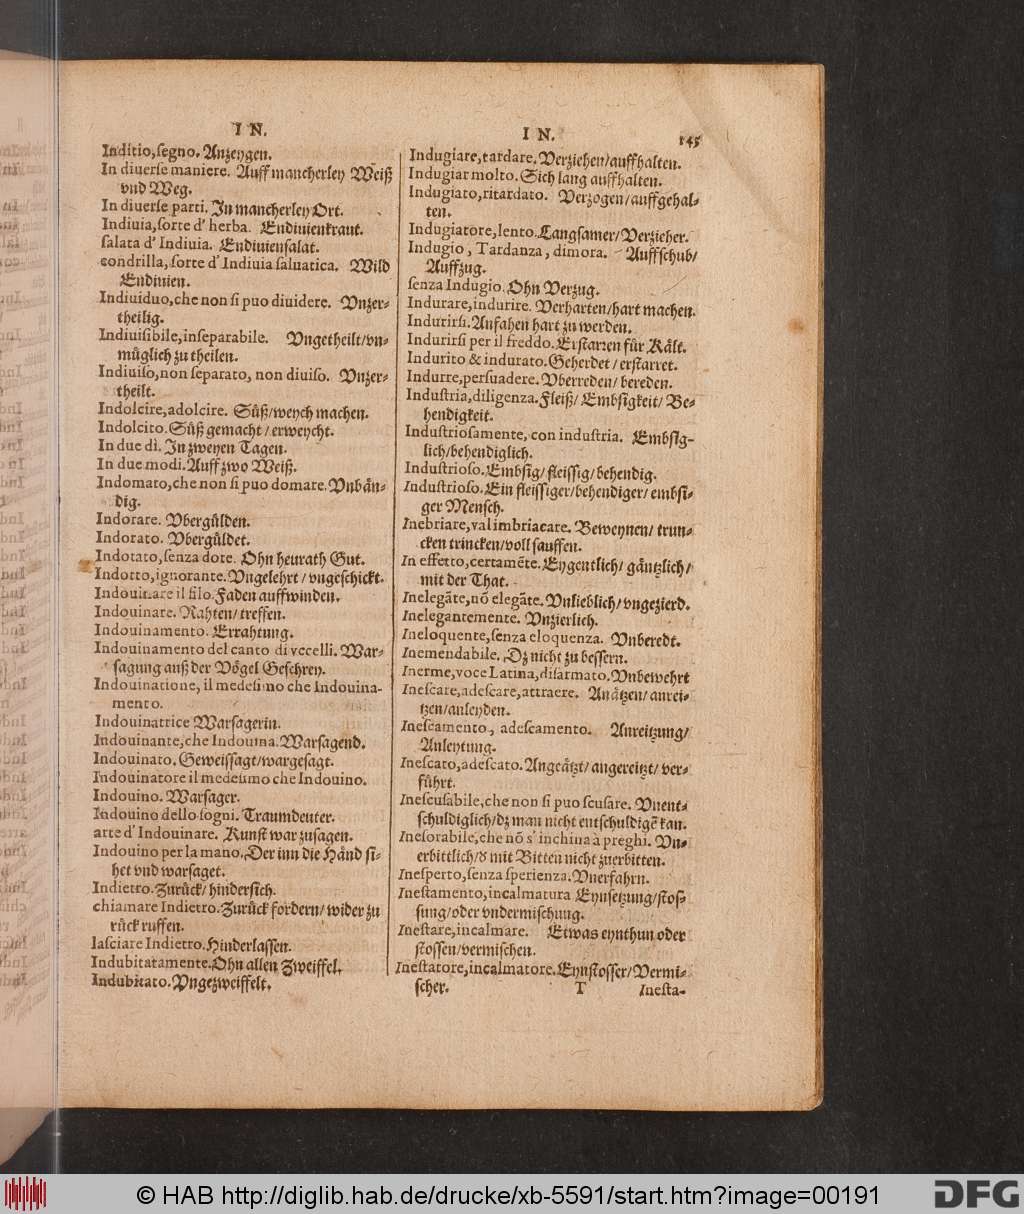 I N.
Inditio,segno. Anzeygen.
In diuerse maniere. Auff mancherley Weiß
vnd Weg.
In diuerse parti. In mancherley Ort.
Indiuia,sorte d' herba. Endiuienkraut.
salata d' Indiuia. Endiuiensalat.
condrilla, sorte d' Indiuia saluatica. Wild
Endiuien.
Indiuiduo,che non si puo diuidere. Vnzer-
theilig.
Indiuisibile,inseparabile. Vngetheilt/vn-
müglich zu theilen.
Indiuiso,non separato, non diuiso. Vnzer-
theilt.
Indolcire,adolcire. Süß/weych machen.
Indolcito. Süß gemacht / erweycht.
In due dì. In zweyen Tagen.
In due modi. Auff zwo Weiß.
Indomato,che non si puo domare. Vnbän-
dig.
Indorare. Vbergülden.
Indorato. Vbergüldet.
Indotato,senza dote. Ohn heurath Gut.
Indotto,ignorante. Vngelehrt / vngeschickt.
Indouinare il filo. Faden auffwinden.
Indouinare. Rahten/ treffen.
Indouinamento. Errahtung.
Indouinamento del canto di vccelli. War-
sagung auß der Vögel Geschrey.
Indouinatione, il medesimo che Indouina-
mento.
Indouinatrice Warsagerin.
Indouinante,che Indouina. Warsagend.
Indouinato. Geweissagt/wargesagt.
Indouinatore il medesimo che Indouino.
Indouino. Warsager.
Indouino dello sogni. Traumdeuter.
arte d' Indouinare. Kunst war zusagen.
Indouino per la mano. Der inn die Händ si-
het vnd warsaget.
Indietro. Zurück/ hindersich.
chiamare Indietro. Zurück fordern/ wider zu
rück ruffen.
lasciare Indietro. Hinderlassen.
Indubitatamente. Ohn allen Zweiffel.
Indubitato. Vngezweiffelt.
I N. 145
Indugiare,tardare. Verziehen/auffhalten.
Indugiar molto. Sich lang auffhalten.
Indugiato,ritardato. Verzogen/auffgehal-
ten.
Indugiatore,lento. Langsamer/Verzieher.
Indugio, Tardanza, dimora. Auffschub/
Auffzug.
senza Indugio. Ohn Verzug.
Indurare,indurire. Verharten/hart machen.
Indurirsi. Anfahen hart zu werden.
Indurirsi per il freddo. Erstarren für Kält.
Indurito & indurato. Geherdet / erstarret.
Indurre,persuadere. Vberreden/ bereden.
Industria,diligenza. Fleiß/ Embsigkeit/ Be-
hendigkeit.
Industriosamente, con industria. Embsig-
lich/behendiglich.
Industrioso. Embsig/ fleissig/ behendig.
Industrioso. Ein fleissiger/behendiger/ embsi-
ger Mensch.
Inebriare,val imbriacare. Beweynen/ trun-
cken trincken/voll sauffen.
In effetto,certamēte. Eygentlich/ gäntzlich/
mit der That.
Inelegāte,nō elegāte. Vnlieblich/ vngezierd.
Inelegantemente. Vnzierlich.
Ineloquente,senza eloquenza. Vnberedt.
Inemendabile. Dz nicht zu bessern.
Inerme,voce Latina,disarmato. Vnbewehrt
Inescare,adescare,attraere. Anätzen/ anrei-
tzen/anleyden.
Inescamento, adescamento. Anreitzung/
Anleytung.
Inescato,adescato. Angeätzt/ angereitzt/ ver-
führt.
Inescusabile,che non si puo scusare. Vnent-
schuldiglich/dz man nicht entschuldigē kan.
Inesorabile,che nō s' inchina à preghi. Vn-
erbittlich/ď mit Bitten nicht zuerbitten.
Inesperto,senza sperienza. Vnerfahrn.
Inestamento,incalmatura Eynsetzung/stos-
sung/oder vndermischung.
Inestare,incalmare. Etwas eynthun oder
stossen/vermischen.
Inestatore,incalmatore. Eynstosser/Vermi-
scher. T Inesta-
© HAB http://diglib.hab.de/drucke/xb-5591/start.htm?image=00191
DFG